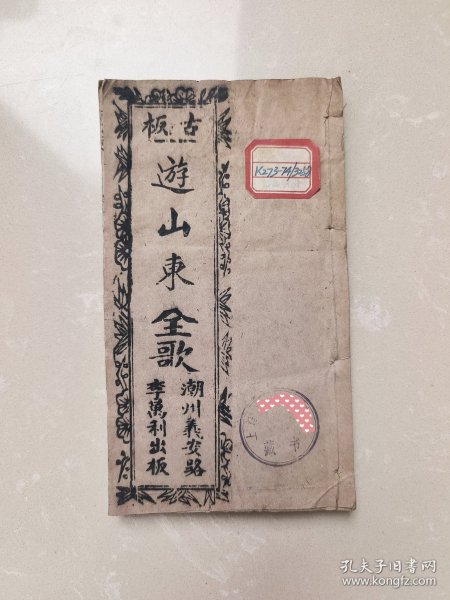 古板
遊山東全歌
潮州義安路
李萬利出板
藏书
孔夫子旧书网
www.kongfz.com